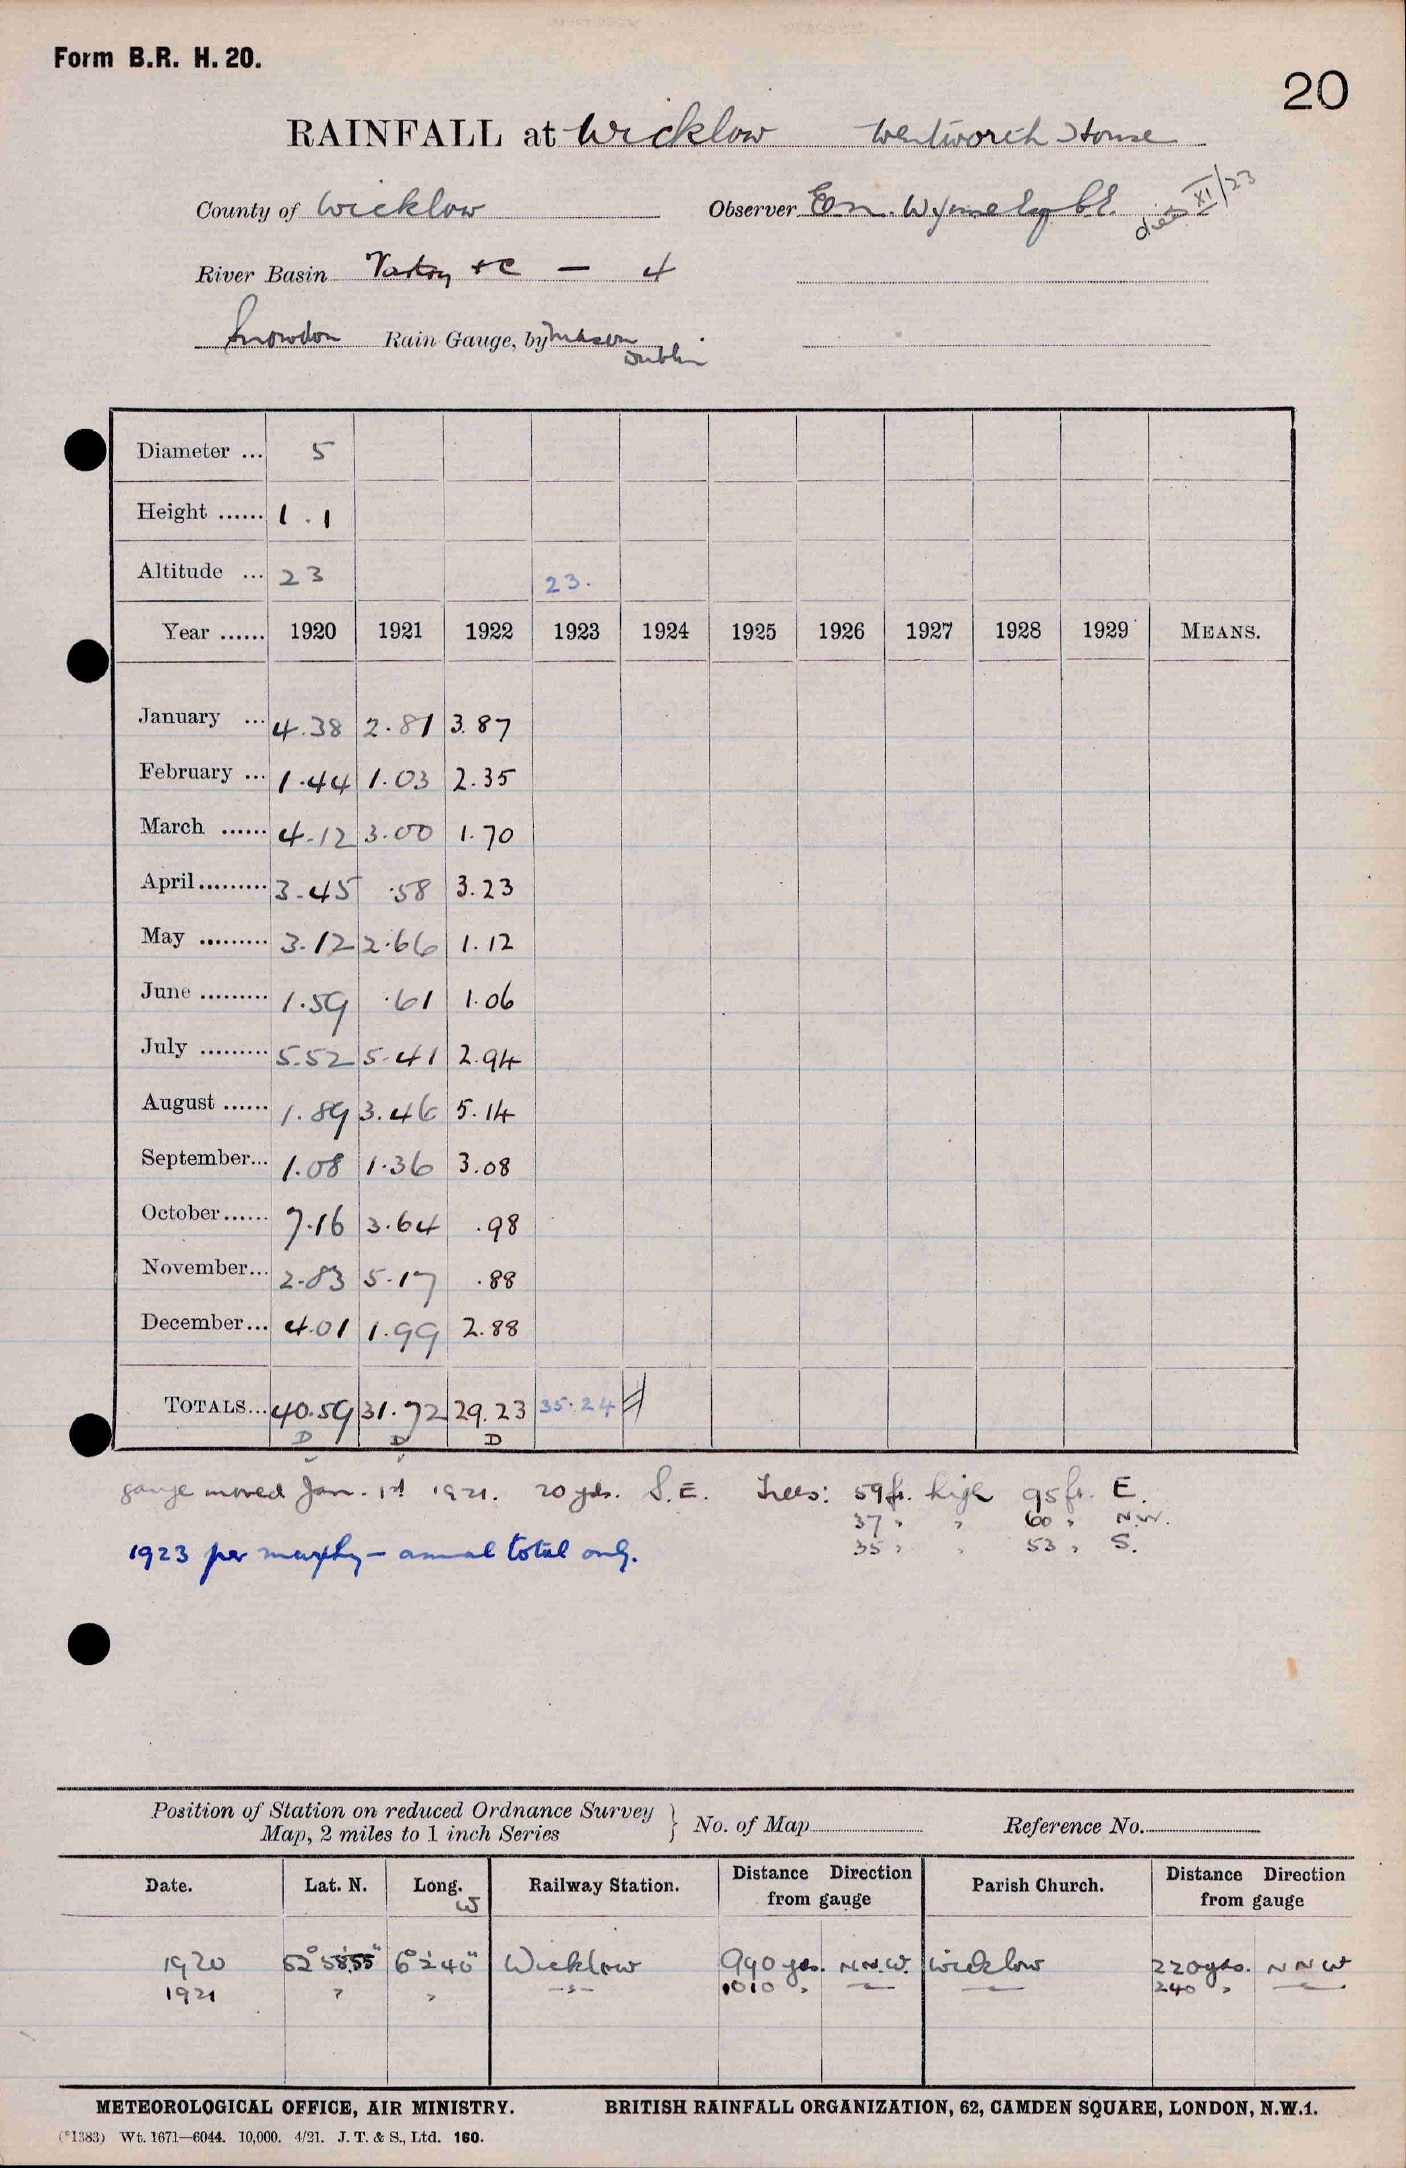 Form B.R. H. 20.
20
RAINFALL at Wicklow Wentworth House
County of Wicklow Observer Wynne Esq C.E. died XI/23
River Basin Vartry &c — 4
Snowdon Rain Gauge, by Mason
Dublin
Diameter ... 5
Height ...... 1.1
Altitude ... 23 23.
Year ...... 1920 1921 1922 1923 1924 1925 1926 1927 1928 1929 MEANS.
January ... 4.38 2.81 3.87
February ... 1.44 1.03 2.35
March ...... 4.12 3.00 1.70
April ......... 3.45 .58 3.23
May ......... 3.12 2.66 1.12
June ......... 1.59 .61 1.06
July ......... 5.52 5.41 2.94
August ...... 1.89 3.46 5.14
September... 1.08 1.36 3.08
October...... 7.16 3.64 .98
November... 2.83 5.17 .88
December... 4.01 1.99 2.88
TOTALS... 40.59 31.72 29.23 35.24
D D D
gauge moved Jan. 1st 1921. 20 yds. S.E. Trees: 59 ft. high 95 ft. E.
37 " " 60 " N.W.
35 " " 53 " S.
1923 per murphy — annual total only.
Position of Station on reduced Ordnance Survey
Map, 2 miles to 1 inch Series } No. of Map Reference No.
Date. Lat. N. Long. W Railway Station. Distance Direction from gauge Parish Church. Distance Direction from gauge
1920 52° 58' 55" 6° 2' 40" Wicklow 990 yds. N.N.W. Wicklow 220 yds. N N W
1921 " " —"— 1010 " — — 240 " —
METEOROLOGICAL OFFICE, AIR MINISTRY. BRITISH RAINFALL ORGANIZATION, 62, CAMDEN SQUARE, LONDON, N.W.1.
(*1383) Wt. 1671—6044. 10,000. 4/21. J. T. & S., Ltd. 160.